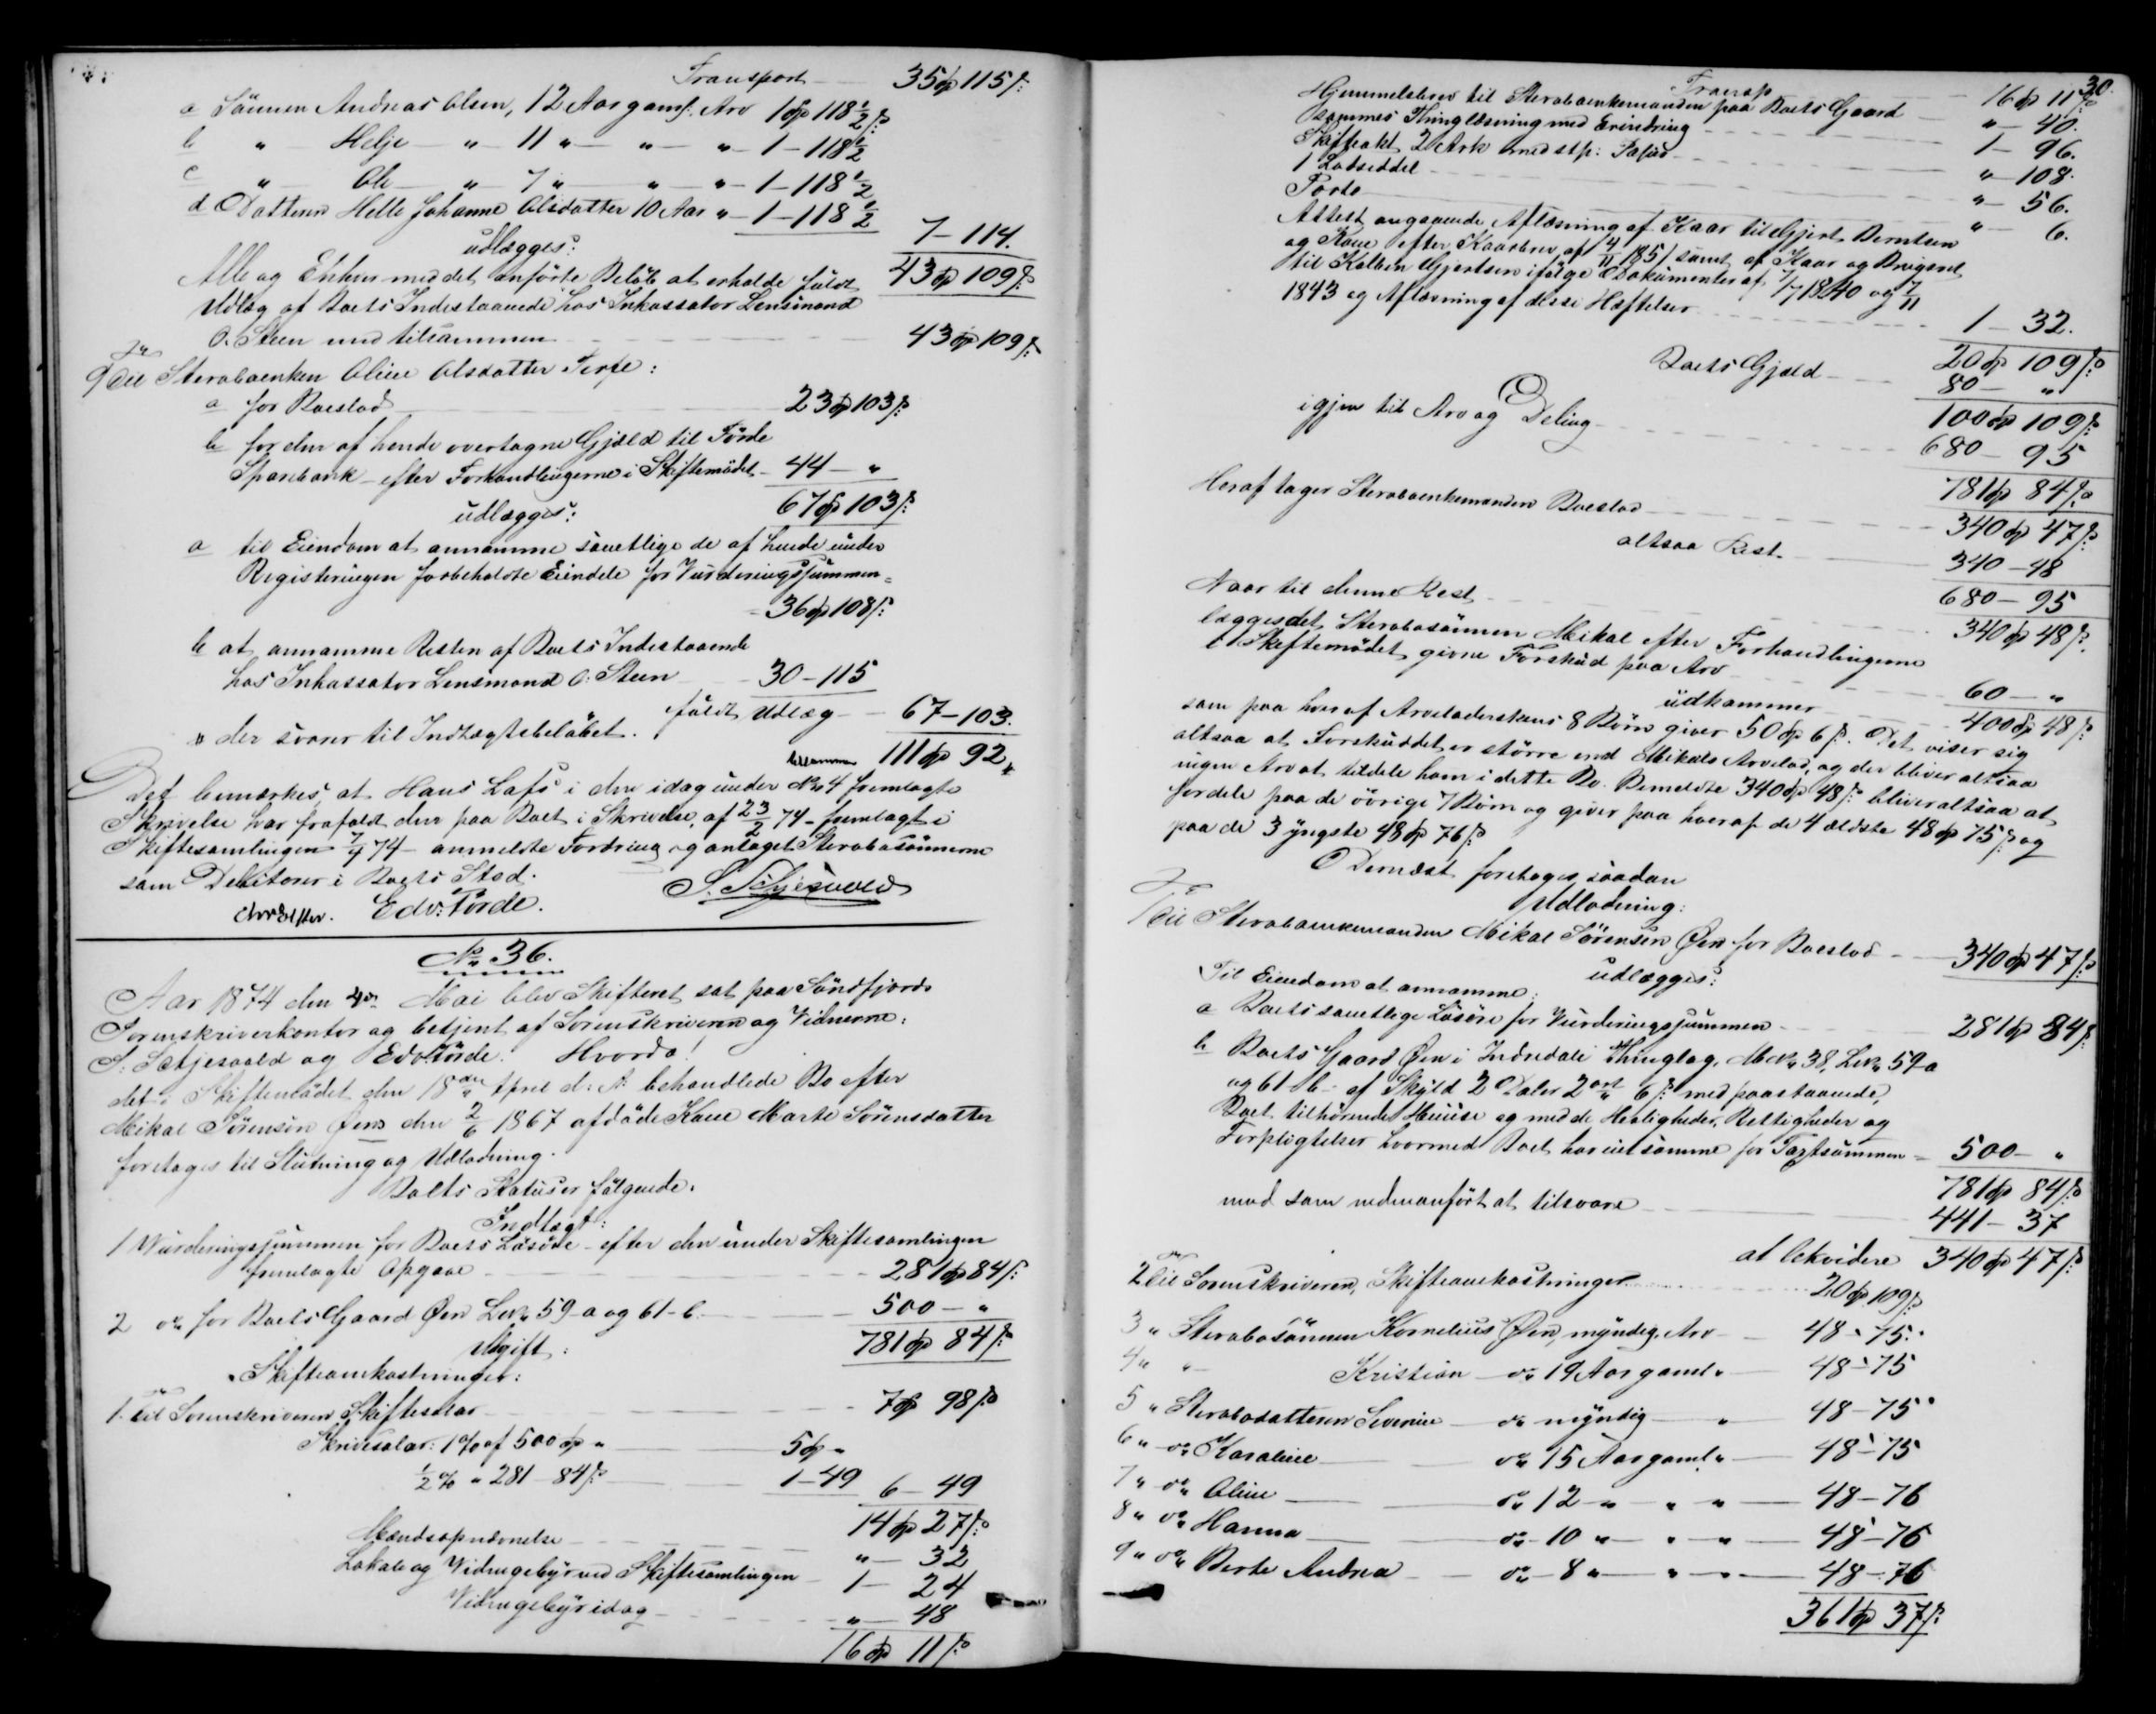 Transport 35 Sp 115 ß:
a Sönnen Andreas Olsen, 12 Aar gaml: Arv 1 Sp 118 1/2 ß:
b " Helje " 11 " " " 1 - 118 1/2
c " Ole " 7 " " " 1 - 118 1/2
d Datteren Helle Johanne Olsdatter 10 Aar " 1 - 118 1/2
7 - 114.
udlægges:
43 Sp 109 ß:
Alle og Enhver med det anförte Belöb at erholde fuldt
Udlæg af Boets Indestaaende hos Inkassator Lensmand
O. Steen med tilsammen 43 Sp 109 ß:
9 Til Sterboenken Oline Olsdatter :
a for Boeslod 23 Sp 103 ß:
b for den af hende overtagne Gjæld til Förde
Sparebank - efter Forhandlingerne i Skiftemödet - 44 - "
67 Sp 103 ß:
udlægges:
a til Eiendom at annamme samtlige de af hende under
Registeringen forbeholdte Eiendele for Vurderingssummen
36 Sp 108 ß:
b at annamme Resten af Boets Indestaaende
hos Inkassator Lensmand O. Steen 30 - 115
fuldt Udlæg 67 - 103.
der svarer til Indtægtsbelöbet. tilsammen 111 Sp 92
Det bemærkes, at Hans Lafs i den idag under No 4 fremlagte
Skrivelse har frafaldt den paa Boet i Skrivelse af 23/2 74 - fremlagt i
Skiftesamlingen 7/4 74 - anmeldte Fordring og antaget Sterbosönnerne
som Debitorer i Boets Sted.
S. Schjesvold
Edv: Förde.
No 36.
Aar 1874 den 4de Mai blev Skifteret sat paa Söndfjords
Sorenskriverkontor og betjent af Sorenskriveren og Vidnerne:
S. Schjesvold og Edv Förde. Hvorda!
det i Skiftemödet den 18de April d: A: behandlede Bo efter
Mikal Sörensen Öens den 2/6 1867 afdöde Kone Marte Sörensdatter
foretages til Slutning og Udlodning.
Boets Status er fölgende.
Indtægt:
1 Vurderingssummen for Boets Lösöre - efter den under Skiftesamlingen
fremlagte Opgave 281 Sp 84 ß:
2 do for Boets Gaard Öen Lno 59-a og 61-b 500 - "
781 Sp 84 ß:
Udgift:
Skifteomkostninger:
1. Til Sorenskriveren Skiftesalær 7 Sp 98 ß
Skrivesalær: 1 % af 500 Sp " 5 Sp "
1/2 % " 281 - 84 ß 1 - 49 6 - 49
14 Sp 27 ß:
Mændsopnævnelse " - 32
Lokale og Vidnegebyr ved Skiftesamlingen 1 - 24
Vidnegebyr idag " - 48
16 Sp 11 ß
30.
Transp 16 Sp 11 ß
Hjemmelsbrev til Sterboenkemanden paa Boets Gaard " - 40.
Sammes Thinglæsning med Erindring 1 - 96.
Skifteakt 2 Ark med stp: Papir " - 108.
1 Lodseddel " - 56.
Porto " - 6.
Attest angaaende Aflæsning af Kaar til Gjert Berntsen
og Kone efter Kaarbrev af 4/11 1851 samt af Kaar og Brugsret
til Kolben Gjertsen ifölge Dokumenter af 7/7 1840 og 7/11
1843 og Aflæsning af disse Heftelser 1 - 32.
20 Sp 109 ß
Boets Gjæld 80 - "
100 Sp 109 ß:
igjen til Arv og Deling 680 - 95
781 Sp 84 ß
Heraf tager Sterboenkemanden Boeslod 340 Sp 47 ß:
altsaa Rest 340 - 48
680 - 95
Naar til denne Rest 340 Sp 48 ß.
lægges det Sterbosönnen Mikal efter Forhandlingerne
i Skiftemödet givne Forskud paa Arv 60 - "
udkommer 400 Sp 48 ß:
som paa hver af Arveladerskens 8 Börn giver 50 Sp 6 ß. Det viser sig
altsaa at Forskuddet er större end Mikals Arvelod, og der bliver altsaa
ingen Arv at tildele ham i dette Bo. Bemeldte 340 Sp 48 ß: bliver altsaa at
fordele paa de övrige 7 Börn og giver paa hver af de 4 ældste 48 Sp 75 ß: og
paa de 3 yngste 48 Sp 76 ß:
Dernæst foretages saadan
Udlodning:
1 Til Sterboenkemanden Mikal Sörensen Öen for Boeslod 340 Sp 47 ß:
udlægges:
Til Eiendom at annamme:
a Boets samtlige Lösöre for Vurderingssummen 281 Sp 84 ß
b Boets Gaard Öen i Indredale Thinglag, Mno 38, Lno 59-a
og 61-b - af Skyld 2 Daler 2 ort 6 ß: med paastaaende
Boet tilhörende Huuse og med de Herligheder, Rettigheder og
Forpligtelser hvormed Boet har eiet samme for Taxtsummen 500 - "
781 Sp 84 ß
mod som nedenanfört at tilsvare 441 - 37
at lekvidere 340 Sp 47 ß:
2 Til Sorenskriveren, Skifteomkostninger 20 Sp 109 ß
3 " Sterbosönnen Kornelius Öen, myndig, Arv 48 - 75.
4 " " Kristian do 19 Aar gaml " 48 - 75
5 " Sterbodatteren Severine do myndig " 48 - 75
6 " do Karoline do 15 Aar gaml " 48 - 75
7 " do Oline do 12 " " " 48 - 76
8 " do Hanna do 10 " " " 48 - 76
9 " do Berte Andrea do 8 " " " 48 - 76
361 Sp 37 ß: